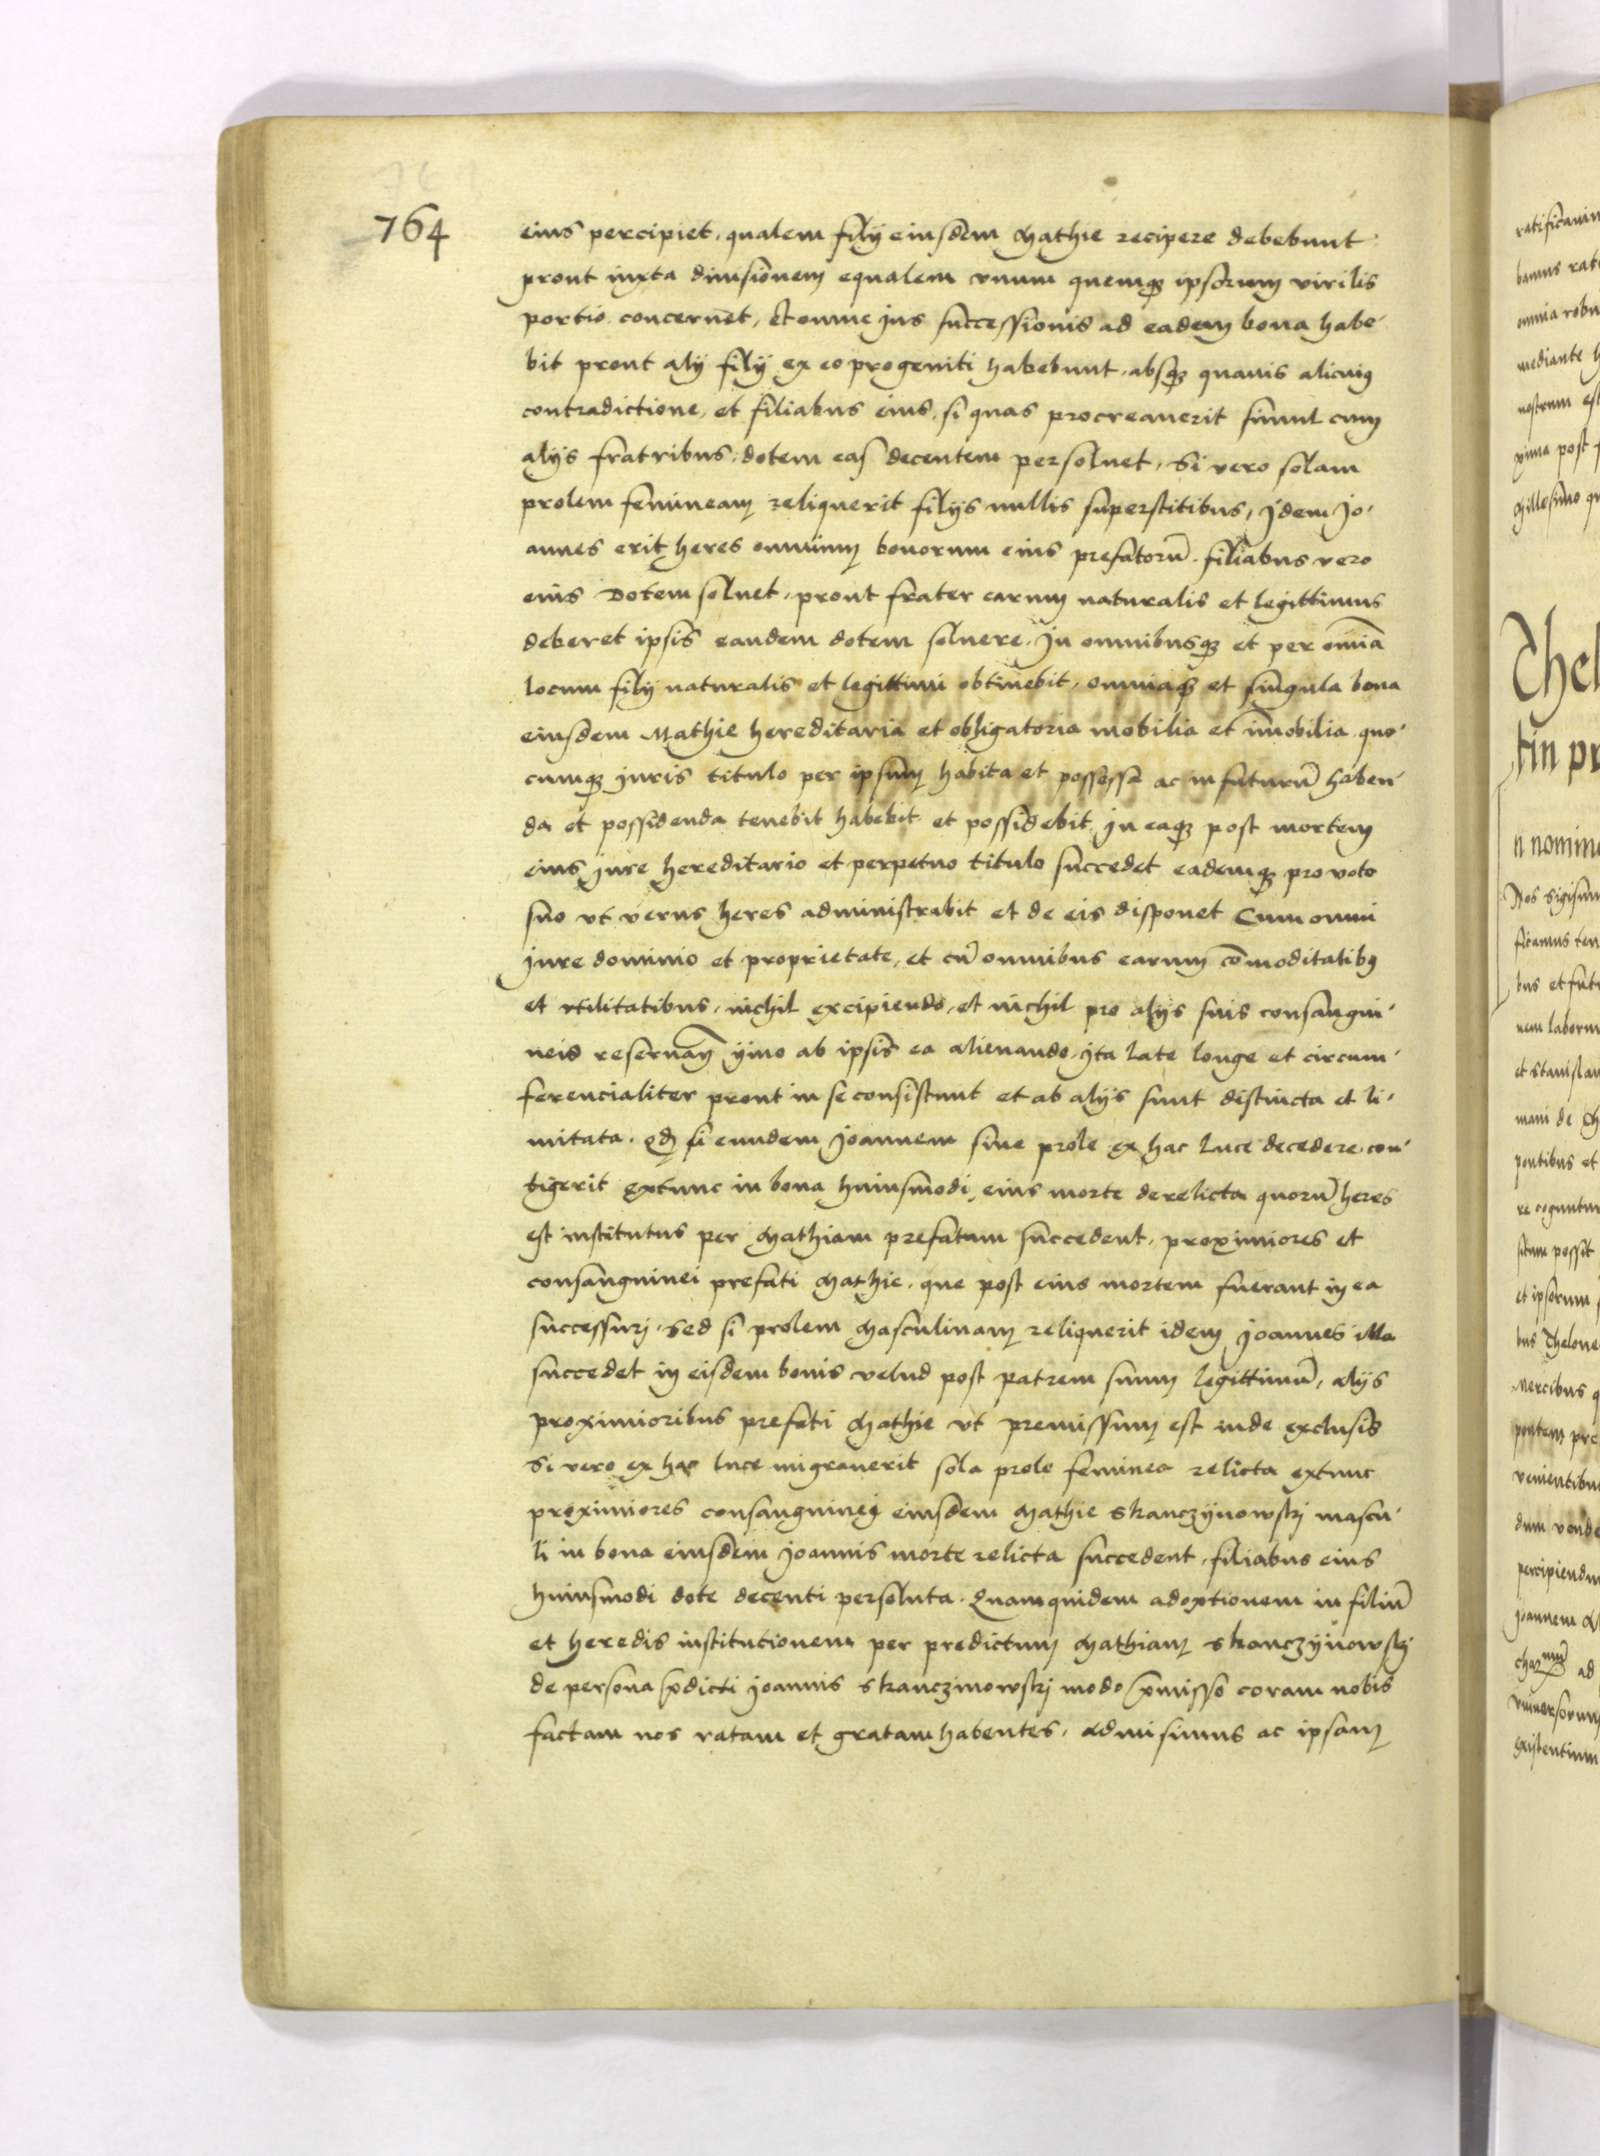 764
eius percipiet, qualem filij eiusdem Mathie recipere debebunt
prout iuxta diuisionem equalem vnum quemq3 ipsorum virilis
portio concernet, Et omne jus successionis ad eadem bona habe-
bit prout alij filij ex eo progeniti habebunt, absq3 quauis alicuius
contradictione, et filiabus eius, si quas procreauerit simul cum
alijs fratribus, dotem eas decentem persoluet, Si vero solam
prolem femineam reliquerit filijs nullis superstitibus, Idem Jo-
annes erit heres omnium bonorum eius prefatorū. filiabus vero
eius Dotem soluet, prout frater earum naturalis et legittimus
deberet ipsis eandem dotem soluere. In omnibusq3 et per omia
locum filij naturalis et legittimi obtinebit, omniaq3 et singula bona
eiusdem Mathie hereditaria et obligatoria mobilia et imobilia quo-
cumq3 juris titulo per ipsum habita et possessa ac in futurū haben-
da et possidenda tenebit habebit et possidebit in eaq3 post mortem
eius jure hereditario et perpetuo titulo succedet eademq3 pro voto
suo vt verus heres administrabit et de eis disponet Cum omni
jure dominio et proprietate, et cū omnibus earum cōmoditatibus
et vtilitatibus, nichil excipiendo, et nichil pro alijs suis consangui-
neis reseruan ymo ab ipsis ea alienando, jta late longe et circum-
ferencialiter prout in se consistunt et ab alijs sunt distincta et li-
mitata. Qd si eundem Joannem sine prole ex hac luce decedere con-
tigerit extunc in bona huiusmodi eius morte derelicta quorū heres
est institutus per Mathiam prefatum succedent, proximiores et
consanguinei prefati Mathie, que post eius mortem fuerant in ea
successuri, Sed si prolem Masculinam reliquerit idem Joannes illa
succedet in eisdem bonis velud post patrem suum legittimū, alijs
proximioribus prefati Mathie vt premissum est inde exclusis
Si vero ex hac luce migrauerit sola prole feminea relicta extunc
proximiores consanguinei eiusdem Mathie Skanczÿnowskj mascu-
li in bona eiusdem Joannis morte relicta succedent, filiabus eius
huiusmodi dote decenti persoluta. Quamquidem adoptionem in filiū
et heredis institutionem per predictum Mathiam Skanczÿnowskj
de persona p̄dicti Joannis Skanczinowskj modo p̄misso coram nobis
factam nos ratam et gratam habentes, admisimus ac ipsam